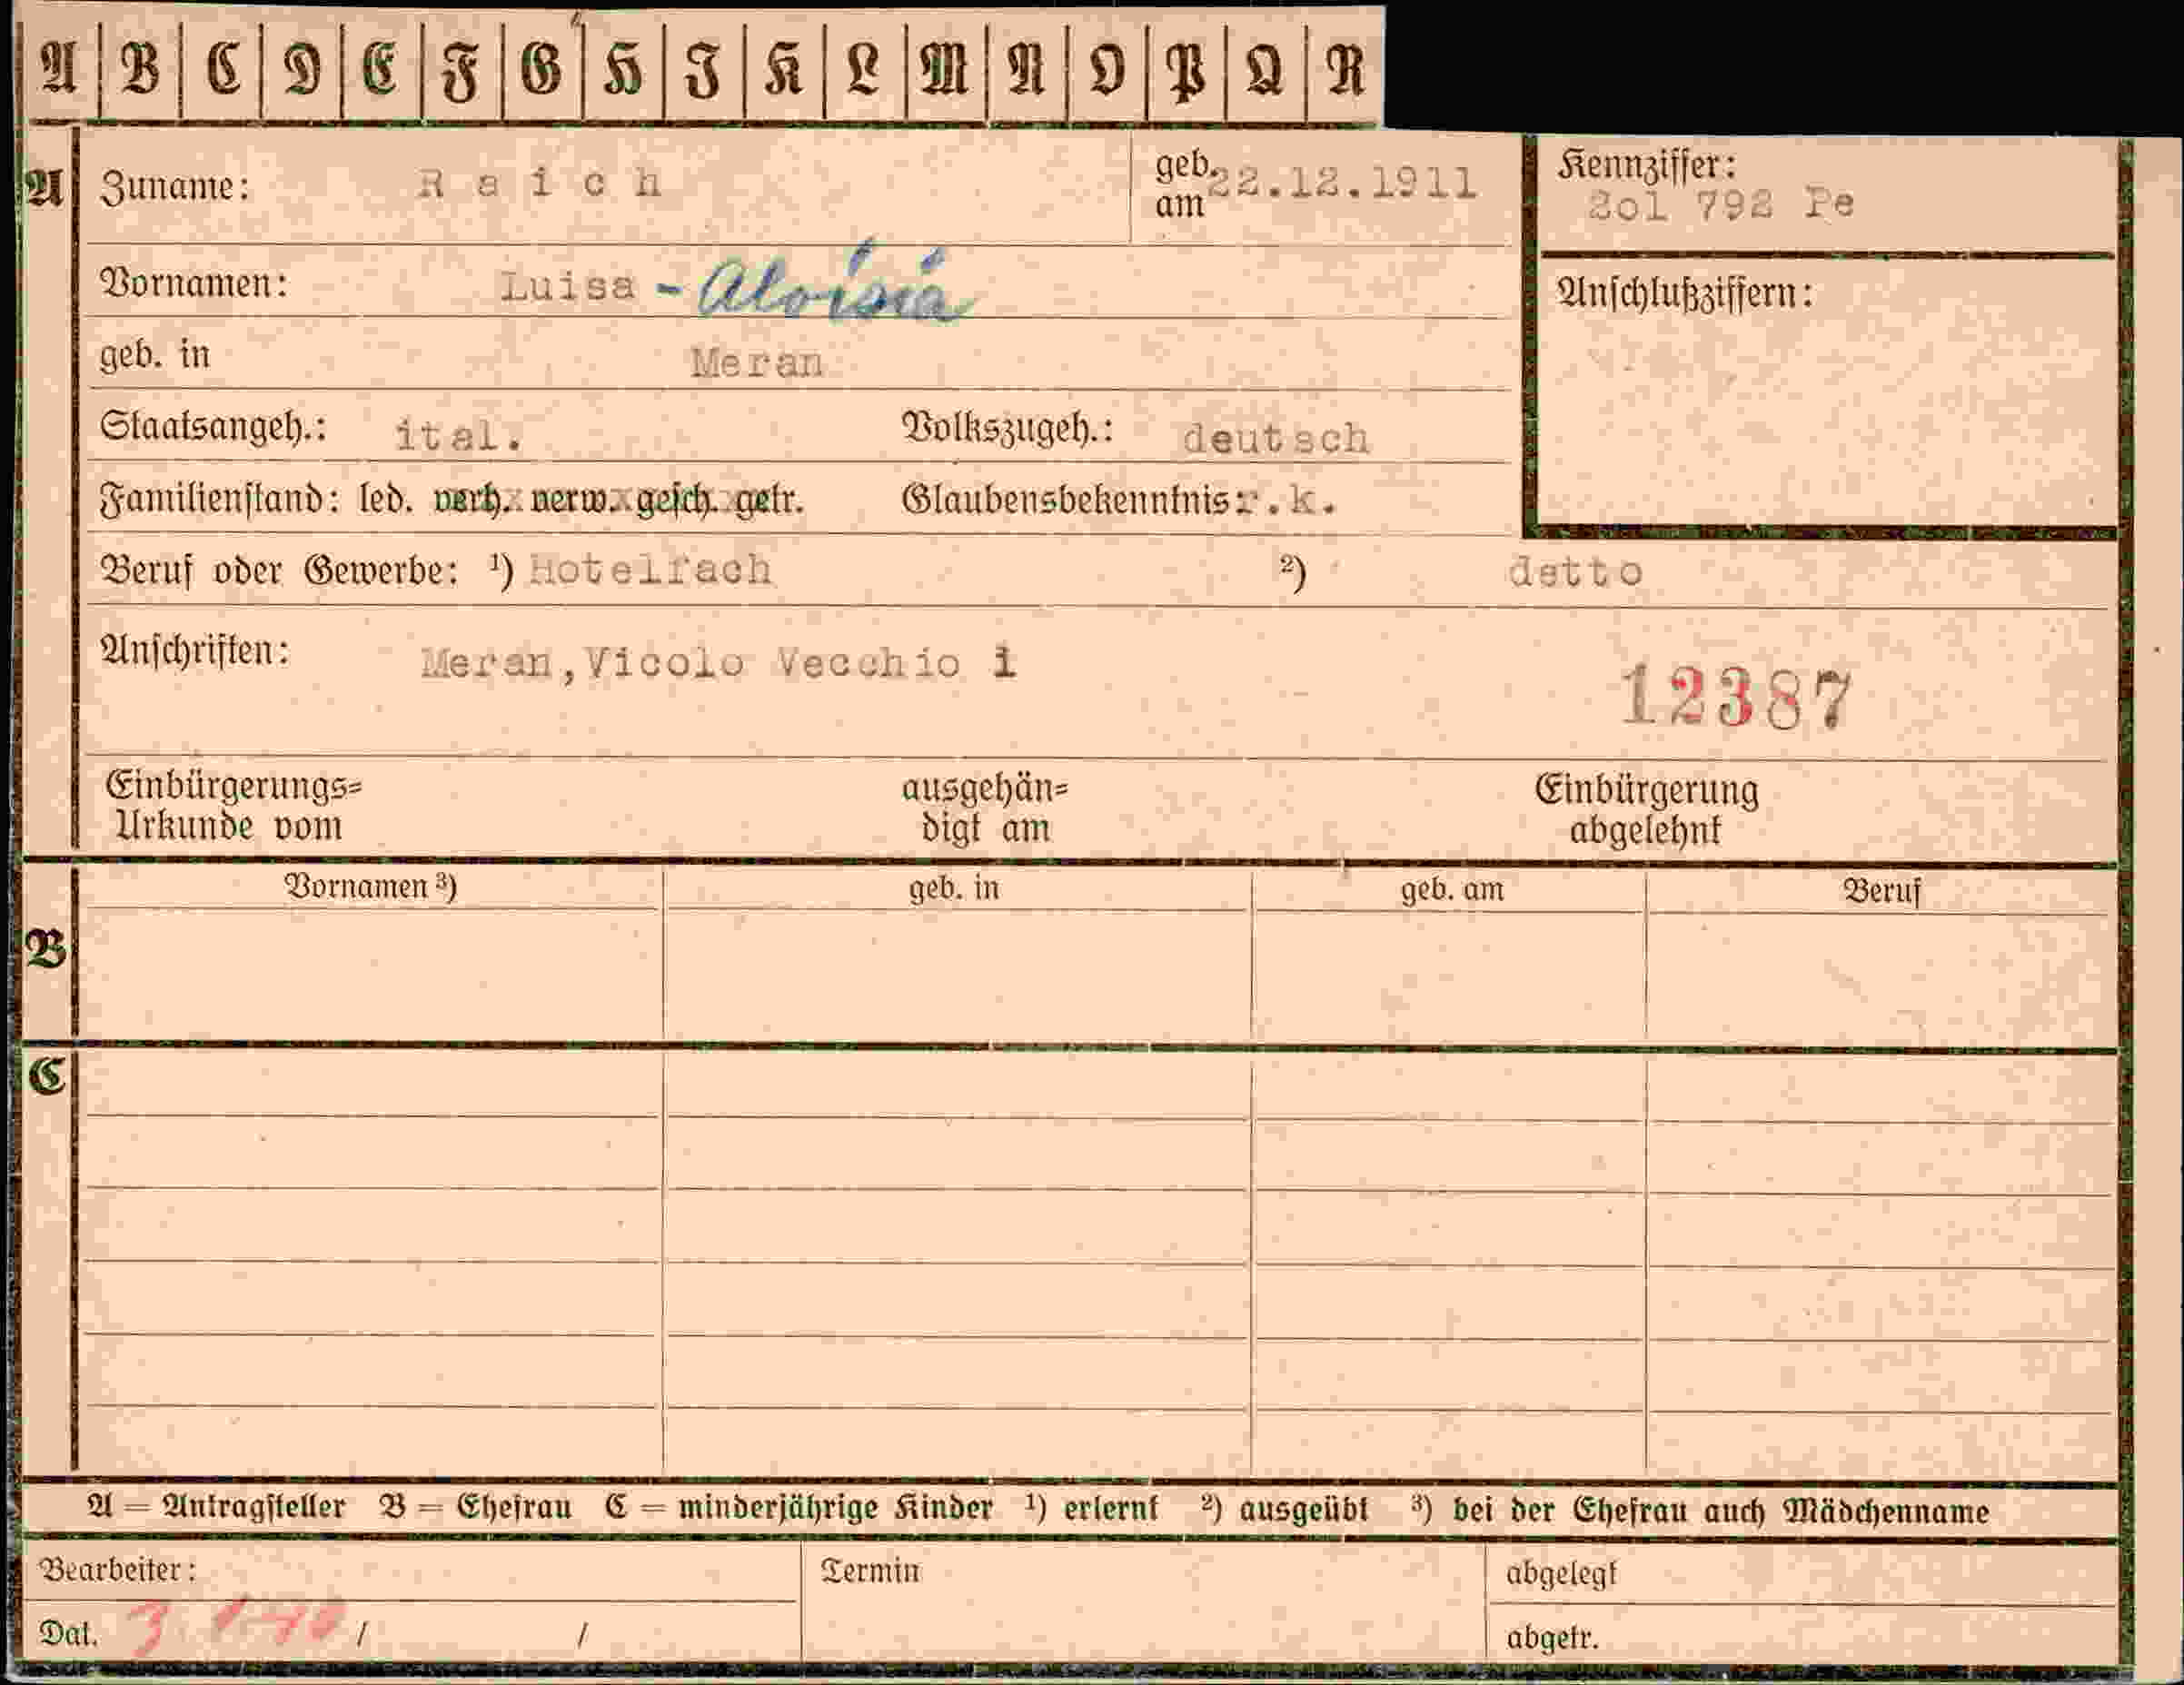 A B C D E F G H I K L M N O P Q R
A Zuname: Raich geb. am 22.12.1911 Kennziffer: 2ol 792 Pe
Vornamen: Luisa - Aloisia Anschlußziffern:
geb. in Meran
Staatsangeh.: ital. Volkszugeh.: deutsch
Familienstand: led. verh. verw. gesch. getr. Glaubensbekenntnis: r.k.
Beruf oder Gewerbe: ¹) Hotelfach ²) detto
Anschriften: Meran, Vicolo Vecchio 1
12387
Einbürgerungs= ausgehän= Einbürgerung
Urkunde vom digt am abgelehnt
Vornamen ³) geb. in geb. am Beruf
B
C
A = Antragsteller B = Ehefrau C = minderjährige Kinder ¹) erlernt ²) ausgeübt ³) bei der Ehefrau auch Mädchenname
Bearbeiter: Termin abgelegt
Dat. / / abgetr.